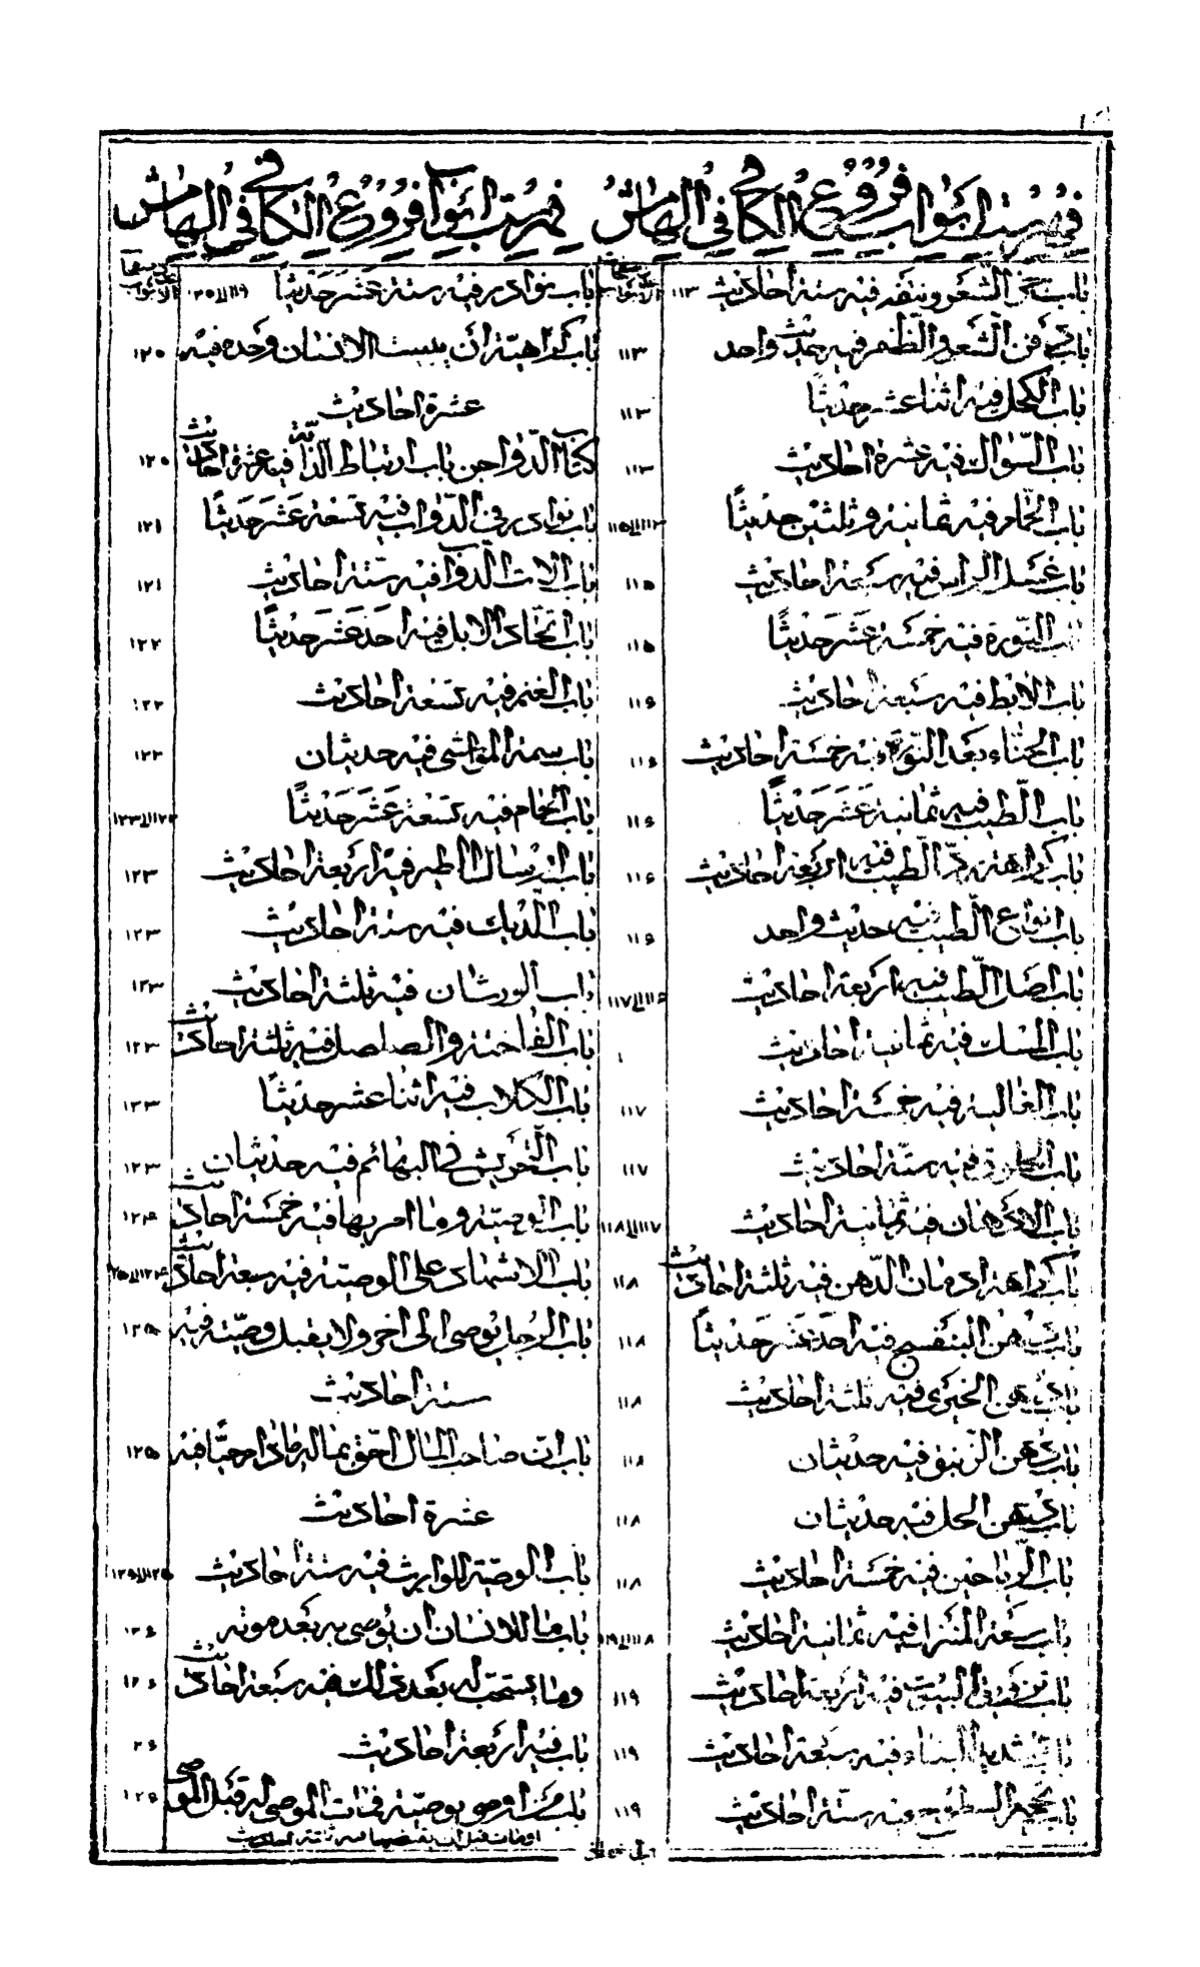 فهرست ابواب فروع الكافي في الهامش
باب جز الشعر وفيه ستة احاديث ١١٣
باب دفن الشعر والظفر فيه حديث واحد ١١٣
باب الكحل فيه اثنا عشر حديثاً ١١٣
باب السواك فيه عشرة احاديث ١١٣
باب الحمام فيه ثمانية وثلثين حديثاً
باب غسل الراس فيه سبعة احاديث ١١٥
باب النورة فيه خمسة عشر حديثاً ١١٥
باب الابط فيه سبعة احاديث ١١٦
باب الحناء بعد النورة فيه خمسة احاديث ١١٦
باب الطيب فيه ثمانية عشر حديثاً ١١٦
باب كراهة رد الطيب فيه اربعة احاديث ١١٦
باب انواع الطيب فيه حديث واحد ١١٦
باب اصل الطيب فيه اربعة احاديث ١١٦ الى ١١٧
باب المسك فيه ثمانية احاديث
باب الغالية فيه خمسة احاديث ١١٧
باب الخلوق فيه ستة احاديث ١١٧
باب الادهان فيه ثمانية احاديث ١١٧ الى ١١٨
باب كراهة ادمان الدهن فيه ثلثة احاديث ١١٨
باب دهن البنفسج فيه احد عشر حديثاً ١١٨
باب دهن الخيري فيه ثلثة احاديث ١١٨
باب دهن الزنبق فيه حديثان ١١٨
باب دهن الحل فيه حديثان ١١٨
باب الرياحين فيه خمسة احاديث ١١٨
باب سعة المنزل فيه ثمانية احاديث ١١٨ الى ١١٩
باب تزويق البيوت فيه اربعة احاديث ١١٩
باب تشييد البناء فيه سبعة احاديث ١١٩
باب تحجير السطوح فيه ستة احاديث ١١٩
فهرست ابواب فروع الكافي في الهامش
باب نوادر فيه ستة عشر حديثاً ١١٩ الى ١٢٠
باب كراهية ان يبيت الانسان وحده فيه ١٢٠
عشرة احاديث
كتاب الدواجن باب ارتباط الدابة فيه عشرة احاديث ١٢٠
باب نوادر في الدواب فيه تسعة عشر حديثاً ١٢١
باب الات الدواب فيه ستة احاديث ١٢١
باب اتخاذ الابل فيه احد عشر حديثاً ١٢٢
باب الغنم فيه تسعة احاديث ١٢٢
باب سمة المواشي فيه حديثان ١٢٢
باب الحمام فيه تسعة عشر حديثاً ١٢٢ الى ١٢٣
باب ارسال الطير فيه اربعة احاديث ١٢٣
باب الديك فيه ستة احاديث ١٢٣
باب الورشان فيه ثلثة احاديث ١٢٣
باب الفاختة والصلصل فيه ثلثة احاديث ١٢٣
باب الكلاب فيه اثنا عشر حديثاً ١٢٣
باب التحريش في البهائم فيه حديثان ١٢٣
باب الوصية وما امر بها فيه خمسة احاديث ١٢٤
باب الاشهاد على الوصية فيه سبعة احاديث
باب الرجل يوصي الى اخر ولا يقبل وصيته فيه ١٢٥
ستة احاديث
باب ان صاحب المال احق بماله مادام حيا فيه ١٢٥
عشرة احاديث
باب الوصية للوارث فيه ستة احاديث
باب ما للانسان ان يوصي به بعد موته ١٢٦
وما يستحب له بعد ذلك فيه سبعة احاديث ١٢٦
باب فيه اربعة احاديث
باب من اوصى بوصية فمات الموصى له قبل الموصي ١٢٦
او مات قبل ان يقبضها فيه ثلثة احاديث